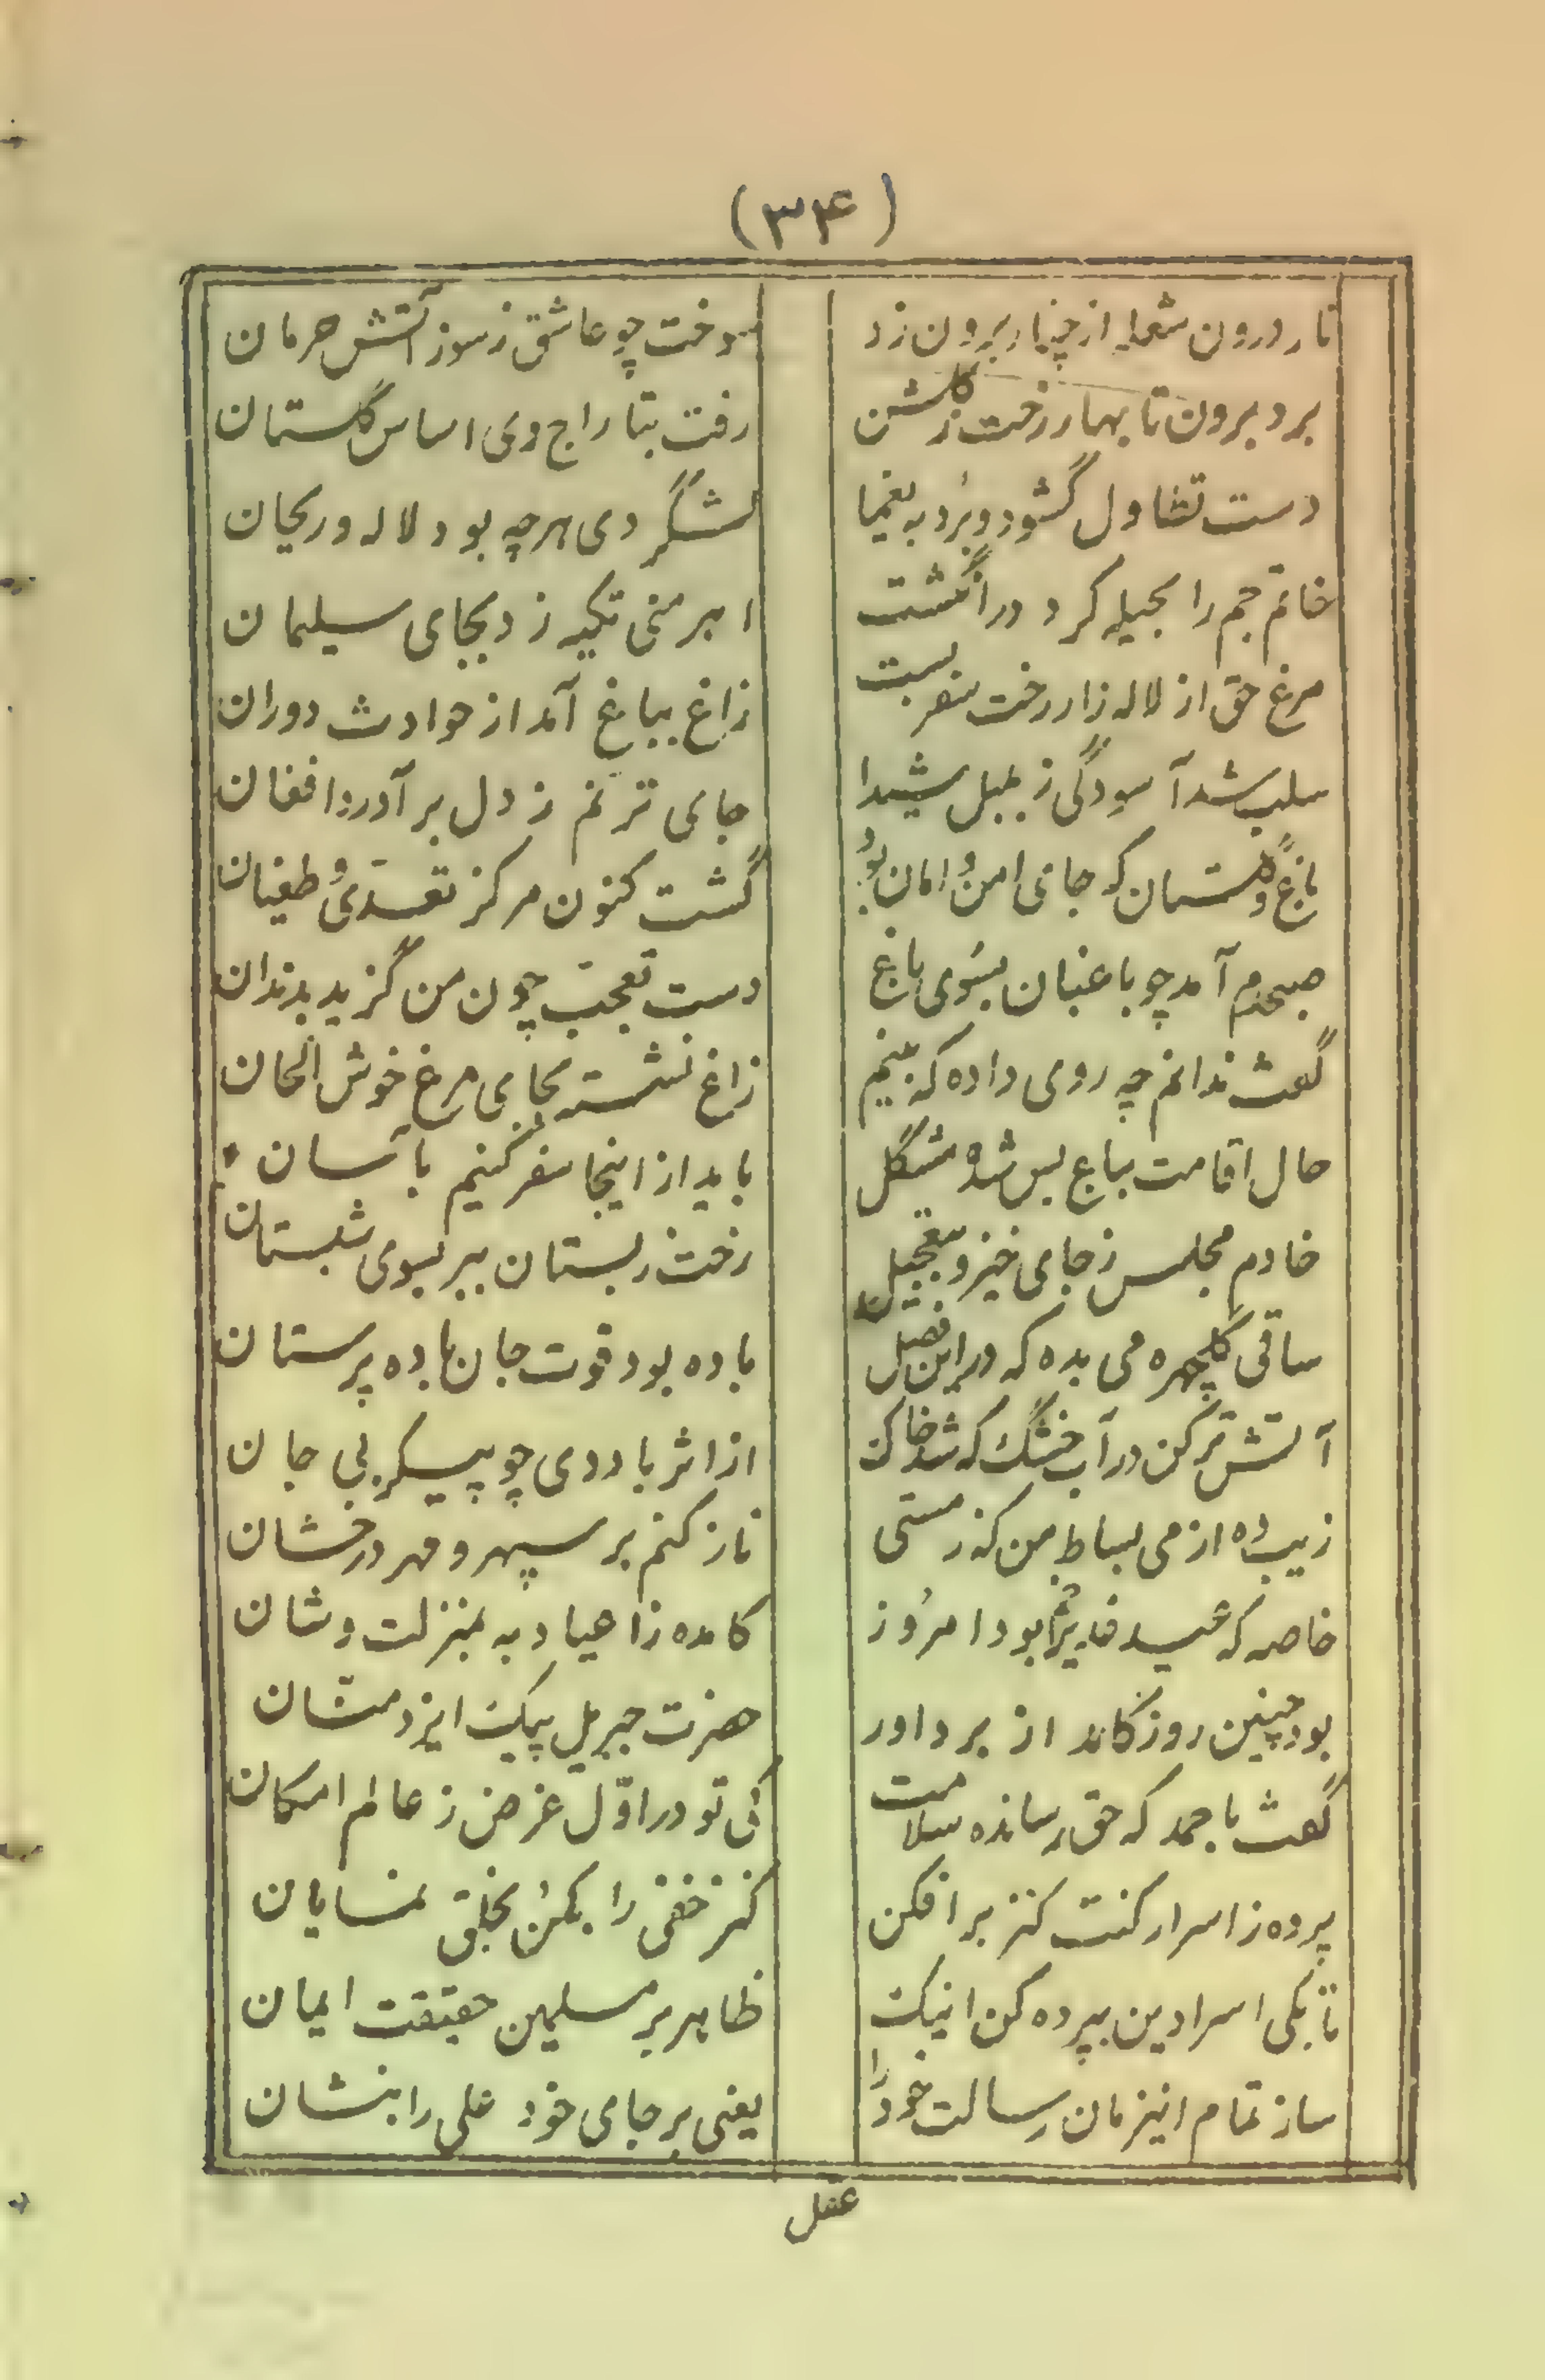 (۳۴)
نار درون شعله از چنار برون زد
سوخت چو عاشق ز سوز آتش حرمان
برد برون تا بهار رخت ز گلشن
رفت بتاراج دی اساس گلستان
دست تطاول گشود و برد به یغما
لشگر دی هرچه بود لاله و ریحان
خاتم جم را بحیله کرد در انگشت
اهرمنی تکیه زد بجای سلیمان
مرغ حق از لاله زار رخت سفر بست
زاغ بباغ آمد از حوادث دوران
سلب شد آسودگی ز بلبل شیدا
جای ترنم ز دل برآورد افغان
باغ و گلستان که جای امن و امان بود
گشت کنون مرکز تعدّی و طغیان
صبحدم آمد چو باغبان بسوی باغ
دست تعجب چون من گزید بدندان
گفت ندانم چه روی داده که بینم
زاغ نشسته بجای مرغ خوش الحان
حال اقامت بباغ بس شده مشگل
باید از اینجا سفر کنیم بآسان
خادم مجلس ز جای خیز و بتعجیل
رخت ز بستان ببر بسوی شبستان
ساقی گلچهره می بده که در این فصل
باده بود قوت جان باده پرستان
آتش تر کن در آب خشگ که شد خاک
از اثر باد دی چو پیکر بی جان
زیب ده از می بساط من که ز مستی
ناز کنم بر سپهر و مهر درخشان
خاصه که عید غدیر بود امروز
کامده ز اعیاد به بمنزلت و شان
بود چنین روز کامد از بر داور
حضرت جبریل پیک ایزد منّان
گفت باحمد که حق رسانده سلامت
کی تو در اوّل غرض ز عالم امکان
پرده ز اسرار کنت کنز برافکن
کنز خفی را بکن بخلق نمایان
تا بکی اسرار دین بپرده کن اینک
ظاهر بر مسلمین حقیقت ایمان
ساز تمام اینزمان رسالت خود را
یعنی بر جای خود علی را بنشان
عقل